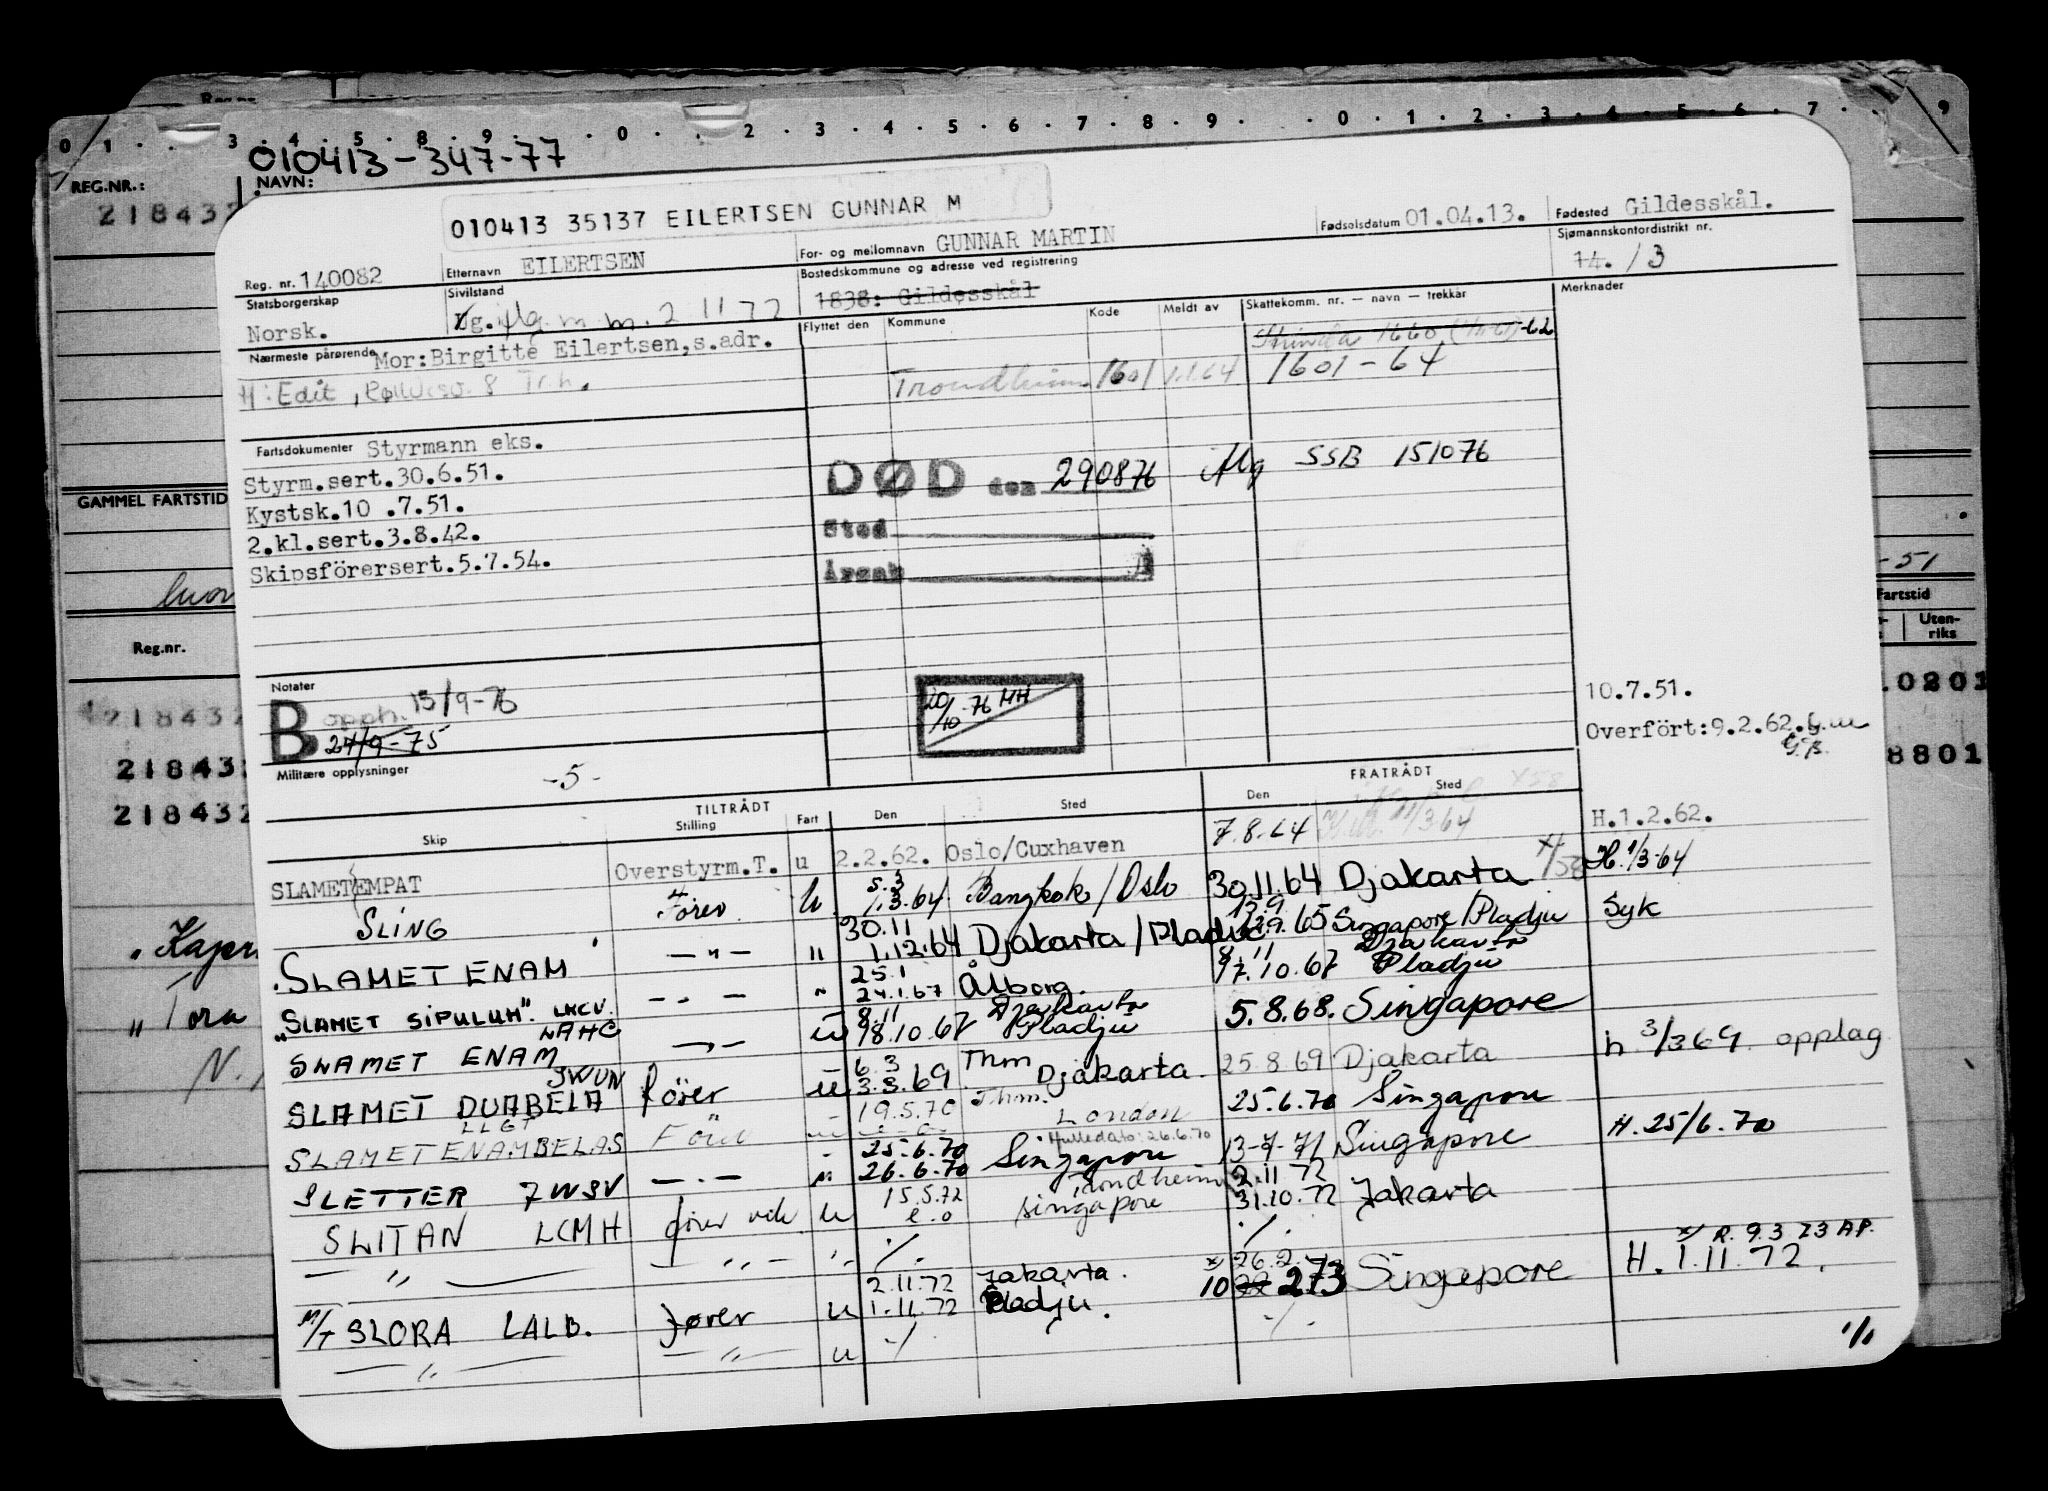 0 1 . . 3 . 4 . 5 . 8 . 9 . . 0 . . 2 . 3 . 4 . 5 . 6 . 7 . 8 . 9 . . 0 . 1 . 2 . 3 . 4 . 5 . 6 . 7 . . 9
010413-347-77
REG.NR.: NAVN:
218432
010413 35137 EILERTSEN GUNNAR M
Reg. nr. 140082 Etternavn EILERTSEN For- og mellomnavn GUNNAR MARTIN Fødselsdatum 01.04.13. Fødested Gildesskål.
Statsborgerskap Norsk. Sivilstand Ug. m. 2 11 72 Bostedskommune og adresse ved registrering 1838: Gildesskål Sjømannskontordistrikt nr. 14. /3
Nærmeste pårørende Mor: Birgitte Eilertsen, s.adr. Flyttet den Kommune Kode Meldt av Skattekomm. nr. — navn — trekkår Merknader
Strinda 1660 -62
H: Edit, 8 Tr.h. Trondheim 1601 1.1.64 1601-64
Fartsdokumenter Styrmann eks.
Styrm.sert.30.6.51.
Kystsk.10 .7.51.
2.kl.sert.3.8.42.
Skipsförersert.5.7.54.
DØD den 290876 Mg SSB 151076
Sted
Årsak
GAMMEL FARTSTID
-51
Fartstid
Reg.nr. Uten-riks
Notater
B opph. 15/9-76
24/9-75
20/10-76 HH
10.7.51.
Overfört:9.2.62.
G.B.
218432
218432
218432
0201
8801
Militære opplysninger -5-
TILTRÅDT FRATRÅDT
Skip Stilling Fart Den Sted Den Sted
SLAMET EMPAT Overstyrm.T. u 2.2.62. Oslo/Cuxhaven 7.8.64 H.1.2.62.
SLING Förer u 5.3 1.3.64 Bangkok/Oslo 30.11.64 Djakarta x/58 H.1/3-64
SLAMET ENAM —"— " 30.11 1.12.64 Djakarta/Pladju 12.9 65 Singapore/Pladju Syk
"SLAMET SIPULUH". LKCV — " — " 25.1 24.1.67 Ålborg. 8.11 17.10.67 Djakarta Pladju
SLAMET ENAM LAHC —"— u 8.11 18.10.67 Djakarta Pladju 5.8.68. Singapore
SLAMET DUABELA JWUN förer u 6.3 3.3.69 Thm Djakarta. 25.8.69 Djakarta h. 3/3 69 opplag
SLAMET ENAMBELAS LLGT Förer 19.5.70 Thm. London 25.6.70 Singapore
SLETTER 7WSV — " — " 25.6.70 26.6.70 Singapore Hulledato: 26.6.70 13-7-71 Singapore H. 25/6.70
SLITAN LCMH fører u 15.5.72 e.o Trondheim Singapore 2.11 72 31.10.72 Jakarta
— " — " " ./. ./.
M/T SLORA LALB. fører u 2.11.72 1.11.72 Jakarta. Pladju. x 26.2. 10 273 Singapore x/ R. 9.3 73 AP. H. 1.11.72.
— " — — " — u ./. ./.
1/1
"Tora
N.